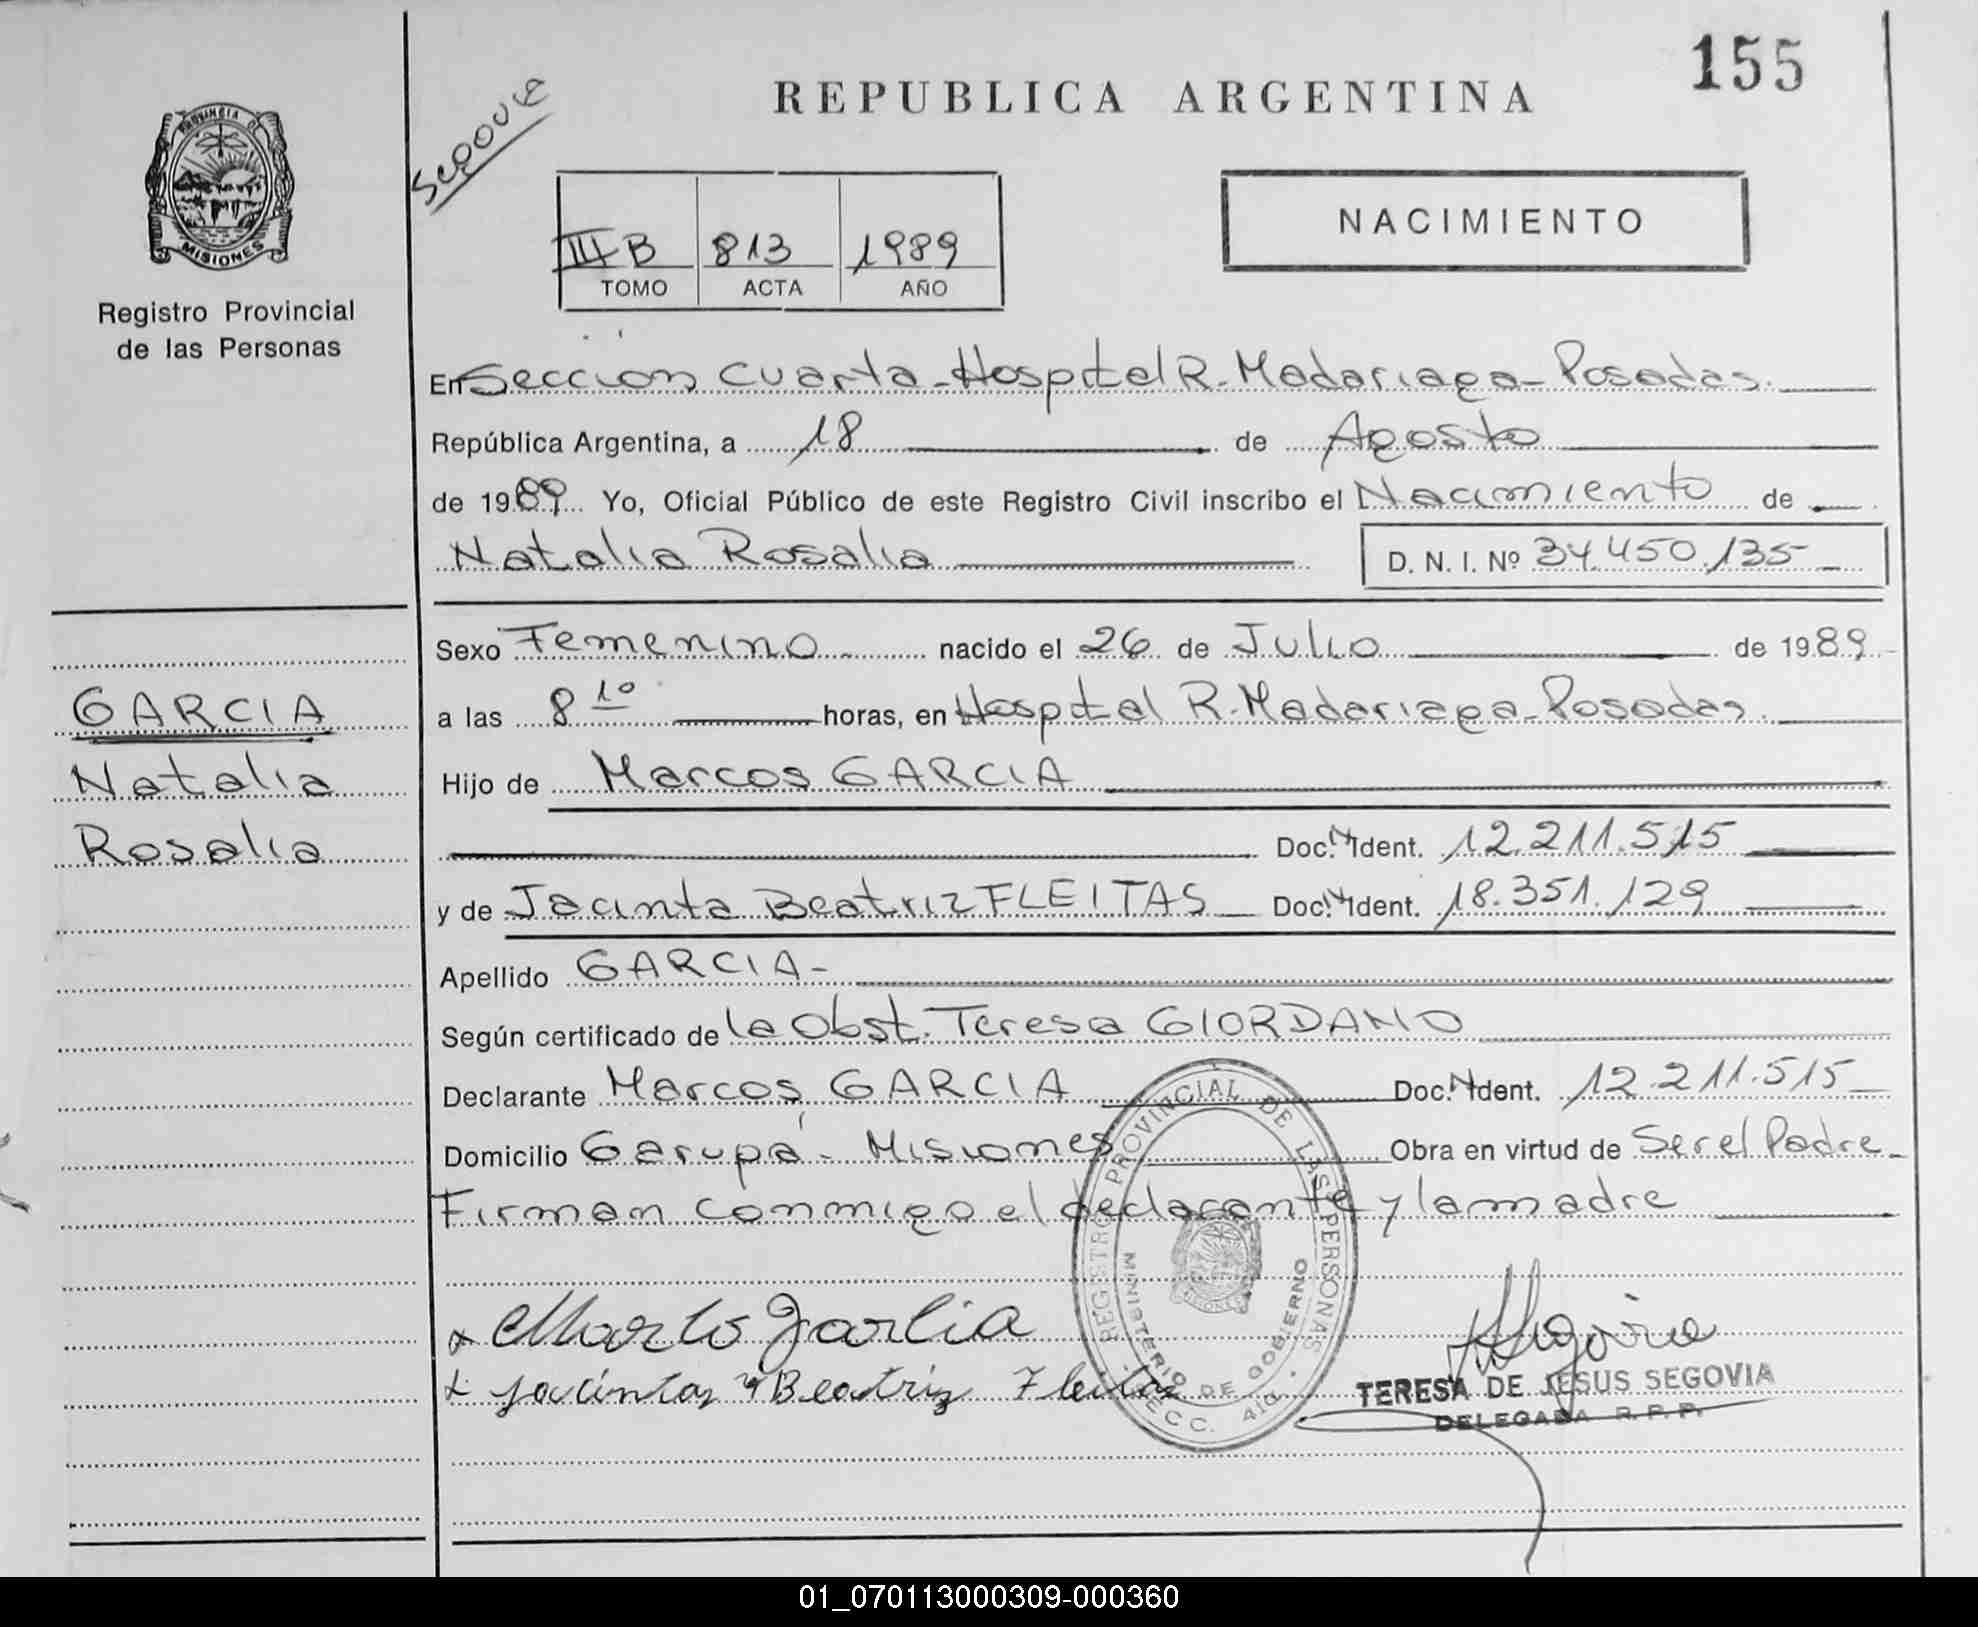 155
REPUBLICA ARGENTINA
Segovia
PROVINCIA DE
MISIONES
Registro Provincial
de las Personas
NACIMIENTO
III B 813 1989
TOMO ACTA AÑO
En Sección Cuarta-Hospital R. Madariaga-Posadas.
República Argentina, a 18 de Agosto
de 1989 Yo, Oficial Público de este Registro Civil inscribo el Nacimiento de
Natalia Rosalia D. N. I. Nº 34.450.135
Sexo Femenino nacido el 26 de Julio de 1989
GARCIA
Natalia
Rosalia
a las 8 10 horas, en Hospital R. Madariaga-Posadas.
Hijo de Marcos GARCIA
Doc. N Ident. 12.211.515
y de Jacinta Beatriz FLEITAS Doc. N Ident. 18.351.129
Apellido GARCIA-
Según certificado de la Obst. Teresa GIORDANO
Declarante Marcos GARCIA Doc. N Ident. 12.211.515
Domicilio Garupá - Misiones Obra en virtud de Ser el Padre
Firman conmigo el declarante y la madre
REGISTRO PROVINCIAL DE LAS PERSONAS
MINISTERIO DE GOBIERNO
SECC. 4ta.
x Marcos Garcia
x Jacinta Beatriz Fleitas
Segovia
TERESA DE JESUS SEGOVIA
DELEGADA R. P. P.
01_070113000309-000360